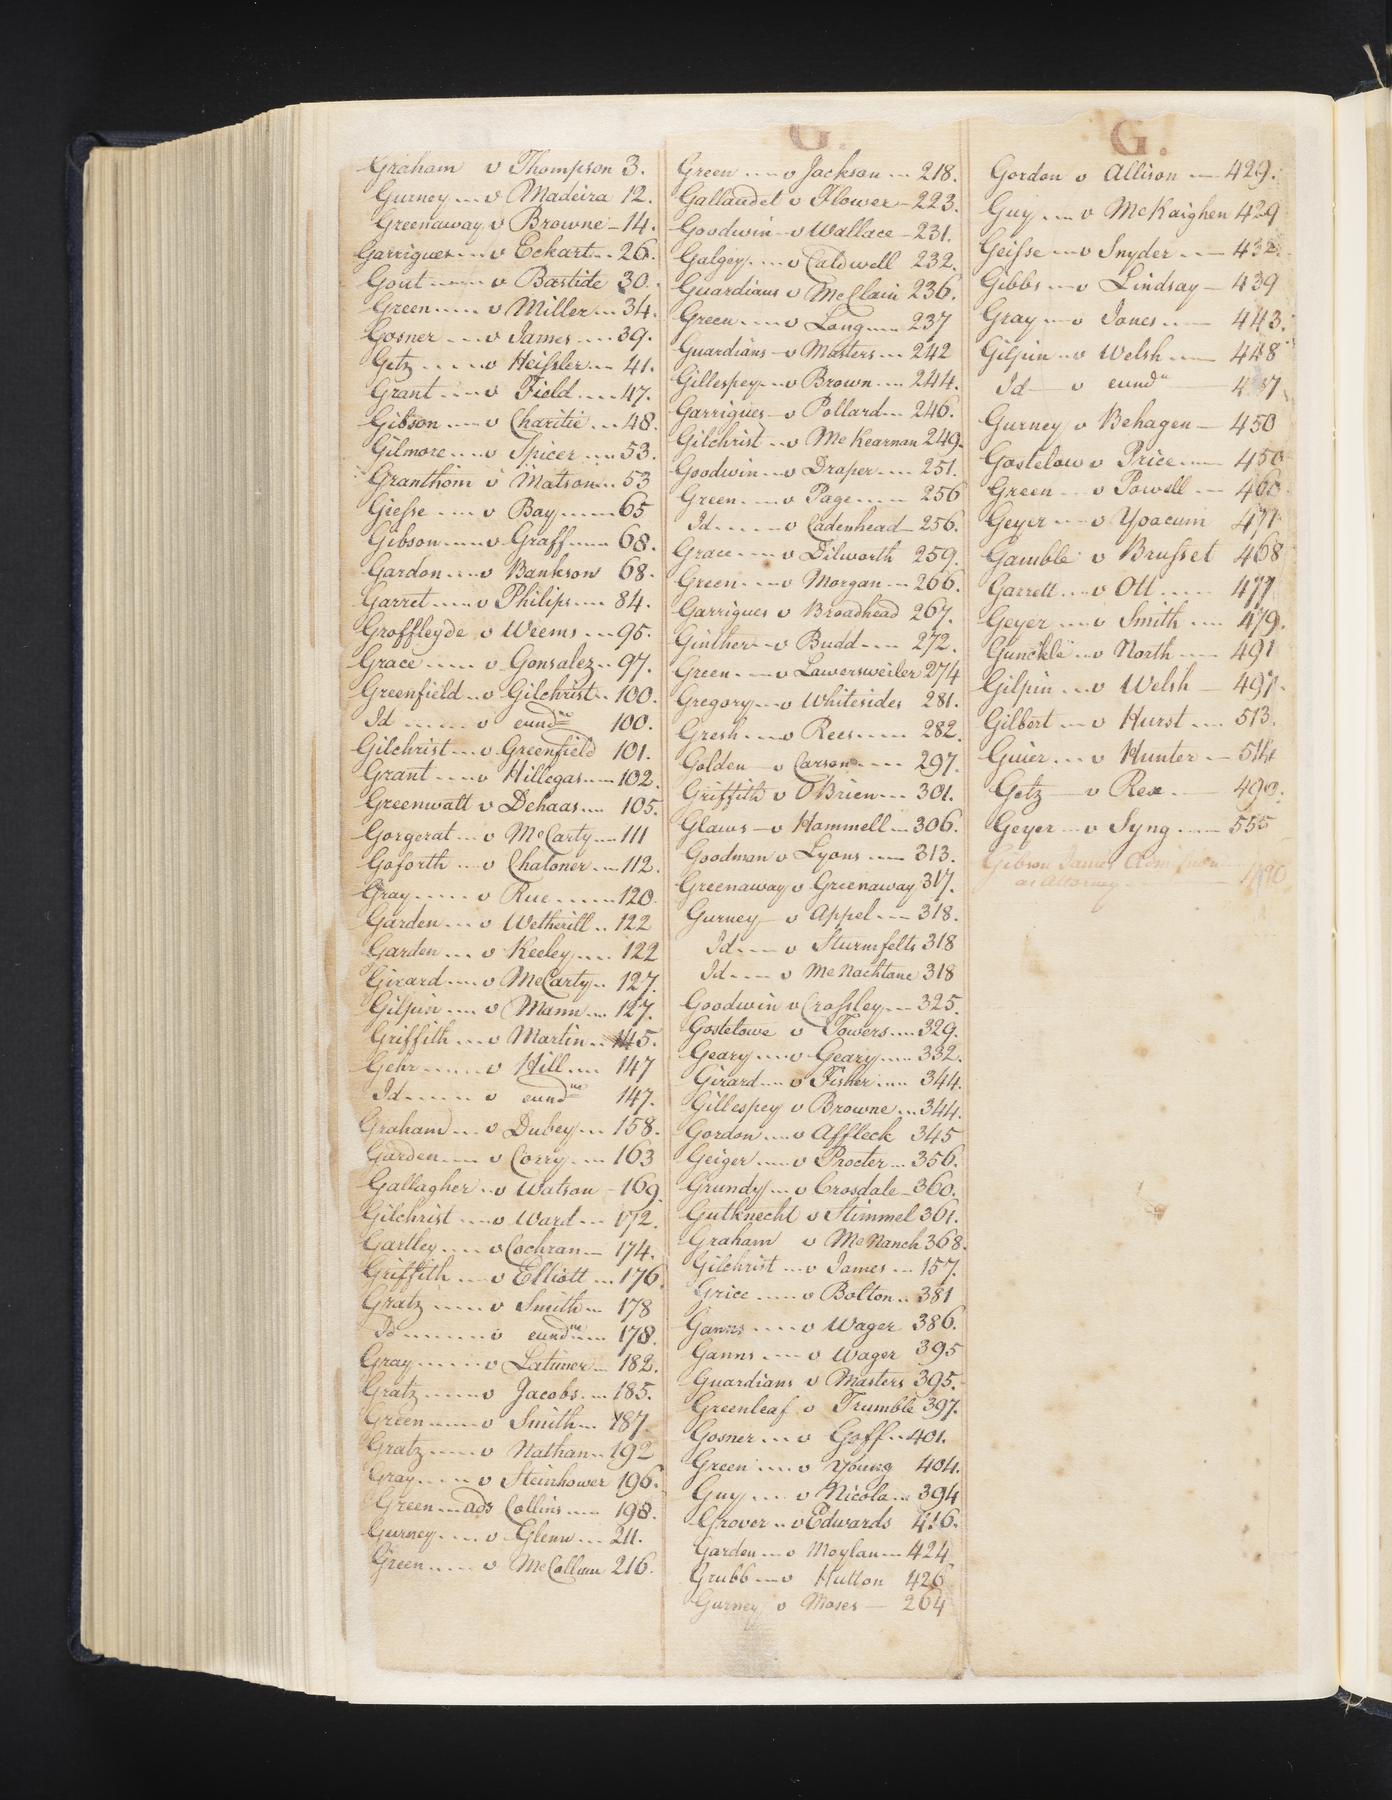 Graham v Thompson 3.
Gurney v Madeira 12.
Greenaway v Browne 14.
Garrigues v Eckart 26.
Gout v Bastide 30.
Green v Miller 34.
Gosner v James 39.
Getz v Heissler 41.
Grant v Field 47.
Gibson v Charitie 48.
Gilmore v Spicer 53.
Granthom v Matson 53
Giesse v Bay 65
Gibson v Graff 68.
Gardon v Bankson 68.
Garret v Philips 84.
Groffleyde v Weems 95.
Grace v Gonsalez 97.
Greenfield v Gilchrist 100.
Id v eundm 100.
Gilchrist v Greenfield 101.
Grant v Hillegas 102.
Greenwatt v Dehaas 105.
Gorgerat v McCarty 111
Goforth v Chaloner 112.
Gray v Rue 120.
Garden v Wetherill 122
Garden v Keeley 122
Girard v McCarty 127.
Gilpin v Mann 127.
Griffith v Martin 145.
Gehr v Hill 147
Id v eundm 147.
Graham v Dubey 158.
Garden v Corry 163
Gallagher v Watson 169
Gilchrist v Ward 172.
Gartley v Cochran 174.
Griffith v Elliott 176
Gratz v Smith 178
Id v eundm 178.
Gray v Latimer 182.
Gratz v Jacobs 185.
Green v Smith 187.
Gratz v Nathan 192
Gray v Steinhower 196.
Green ads Collins 198.
Gurney v Glenn 211.
Green v McCollum 216.
G.
Green v Jackson 218.
Gallaudet v Flower 223.
Goodwin v Wallace 231.
Galgey v Caldwell 232.
Guardians v McClain 236.
Green v Long 237
Guardians v Masters 242
Gillespey v Brown 244.
Garrigues v Pollard 246.
Gilchrist v McKearnan 249.
Goodwin v Draper 251.
Green v Page 256
Id v Cadenhead 256.
Grace v Dilworth 259.
Green v Morgan 266.
Garrigues v Broadhead 267.
Ginther v Budd 272.
Green v Lawersweiler 274
Gregory v Whitesides 281.
Gresh v Rees 282.
Golden v Carson 297.
Griffith v OBrien 301.
Glaws v Hammell 306.
Goodman v Lyons 313.
Greenaway v Greenaway 317.
Gurney v Appel 318.
Id v Sturmfelts 318
Id v McNachtane 318
Goodwin v Crossley 325.
Gostelowe v Towers 329.
Geary v Geary 332.
Girard v Fisher 344.
Gillespey v Browne 344.
Gordon v Affleck 345
Geiger v Procter 356.
Grundy v Crosdale 360.
Gutknecht v Stimmel 361.
Graham v McNanch 368.
Gilchrist v James 157.
Grice v Bolton 381
Ganns v Wager 386.
Ganns v Wager 395
Guardians v Masters 395.
Greenleaf v Trumble 397.
Gosner v Goff 401.
Green v Young 404.
Guy v Nicola 394
Grover v Edwards 416.
Garden v Moylan 424
Grubb v Hutton 426
Gurney v Moses 264
G.
Gordon v Allison 429.
Guy v McKaighen 429
Geisse v Snyder 432.
Gibbs v Lindsay 439
Gray v Jones 443.
Gilpin v Welsh 448
Id v eundm
Gurney v Behagen 450
Gostelow v Price 450
Green v Powell 460
Geyer v Yoacum 471
Gamble v Brusset 468
Garrett v Ott 477
Geyer v Smith 479.
Gunckle v North 491
Gilpin v Welsh 497.
Gilbert v Hurst 513.
Guier v Hunter 514
Getz v Rex 490.
Geyer v Syng 555
Gibson James
as Attorney